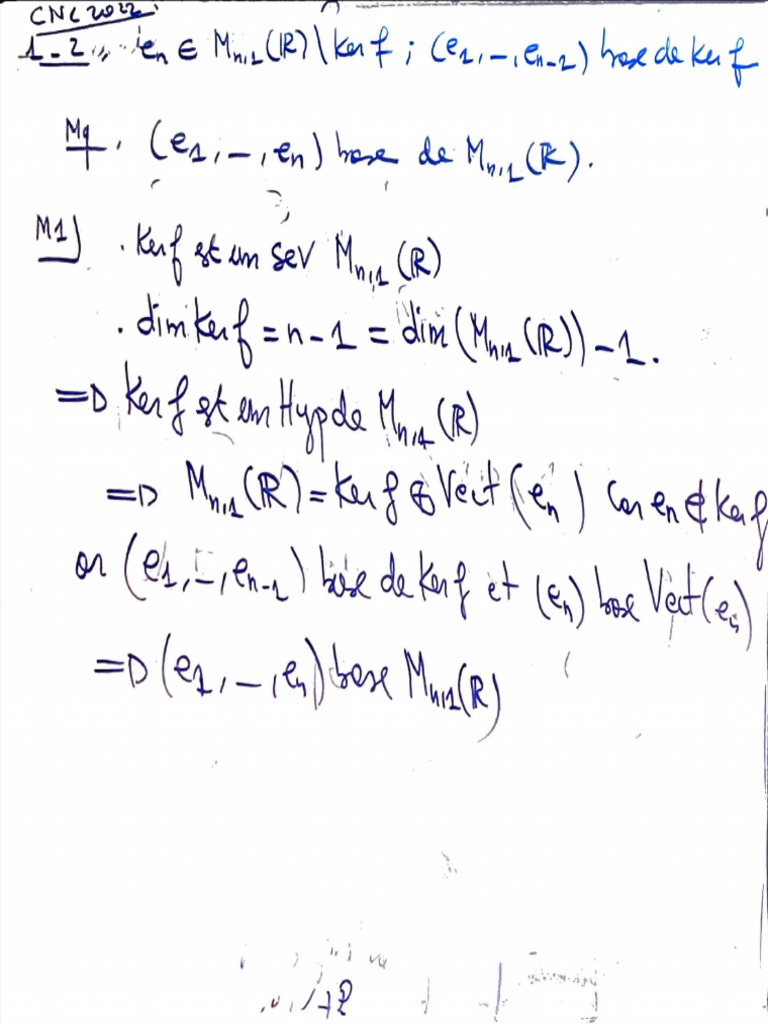 CNC 2022:
1-2.. en ∈ Mn,1(ℝ)\Kerf ; (e1, -, en-1) base de Kerf
Mq . (e1, -, en) base de Mn,1(ℝ).
M1) . Kerf est un sev Mn,1(ℝ)
. dim Kerf = n-1 = dim(Mn,1(ℝ)) -1.
=> Kerf est un Hyp de Mn,1(ℝ)
=> Mn,1(ℝ) = Kerf ⊕ Vect(en) Car en ∉ Kerf
or (e1, -, en-1) base de Kerf et (en) base Vect(en)
=> (e1, -, en) base Mn,1(ℝ)